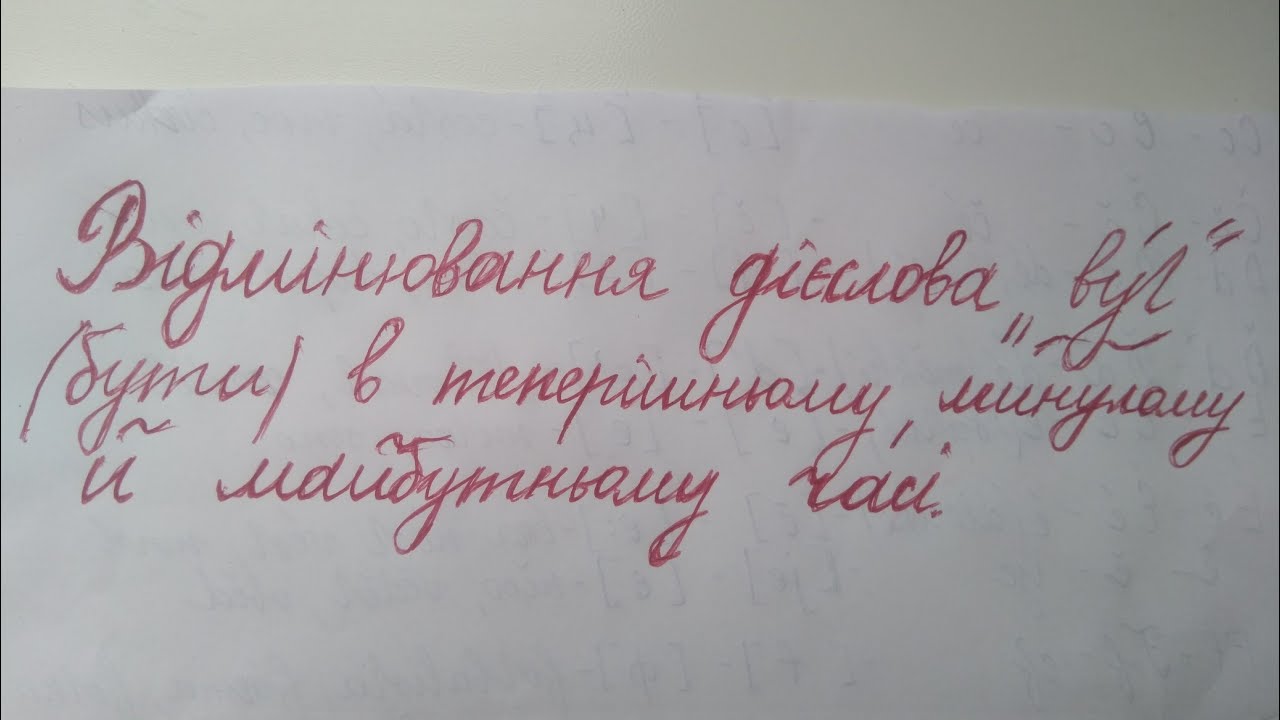 Відмінювання дієслова „být“
(бути) в теперішньому, минулому
й майбутньому часі.